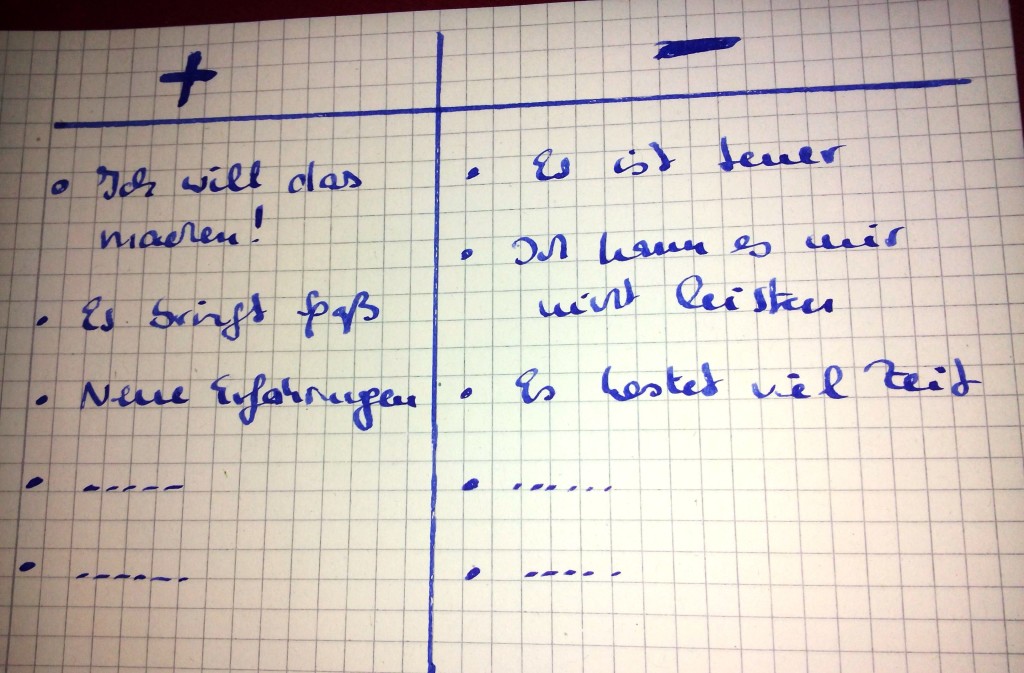 +
−
• Ich will das
machen!
• Es bringt Spaß
• Neue Erfahrungen
• -----
• ------
• Es ist teuer
• Ich kann es mir
nicht leisten
• Es kostet viel Zeit
• ......
• -----